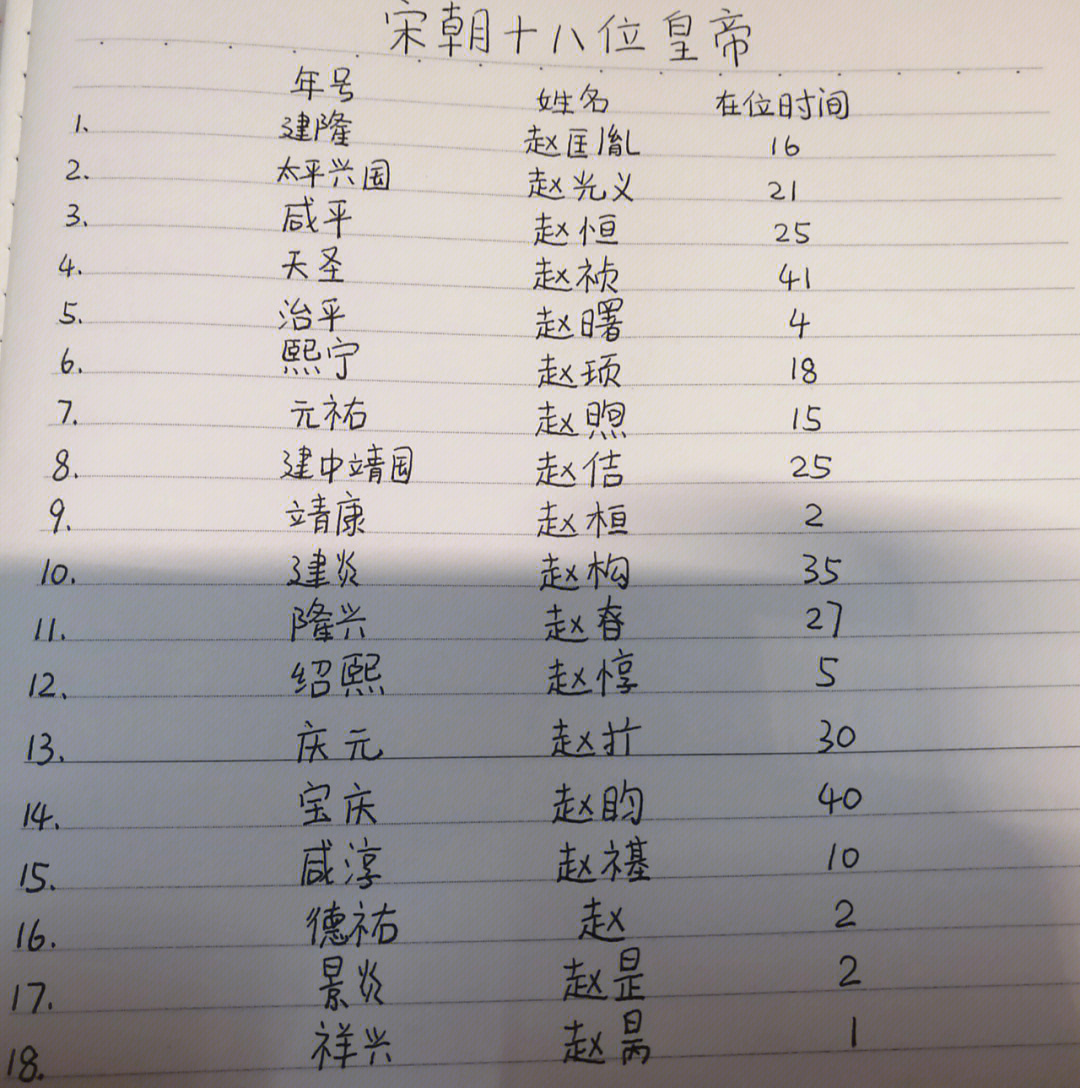 宋朝十八位皇帝
年号 姓名 在位时间
1. 建隆 赵匡胤 16
2. 太平兴国 赵光义 21
3. 咸平 赵恒 25
4. 天圣 赵祯 41
5. 治平 赵曙 4
6. 熙宁 赵顼 18
7. 元祐 赵煦 15
8. 建中靖国 赵佶 25
9. 靖康 赵桓 2
10. 建炎 赵构 35
11. 隆兴 赵眘 27
12. 绍熙 赵惇 5
13. 庆元 赵扩 30
14. 宝庆 赵昀 40
15. 咸淳 赵禥 10
16. 德祐 赵 2
17. 景炎 赵昰 2
18. 祥兴 赵昺 1